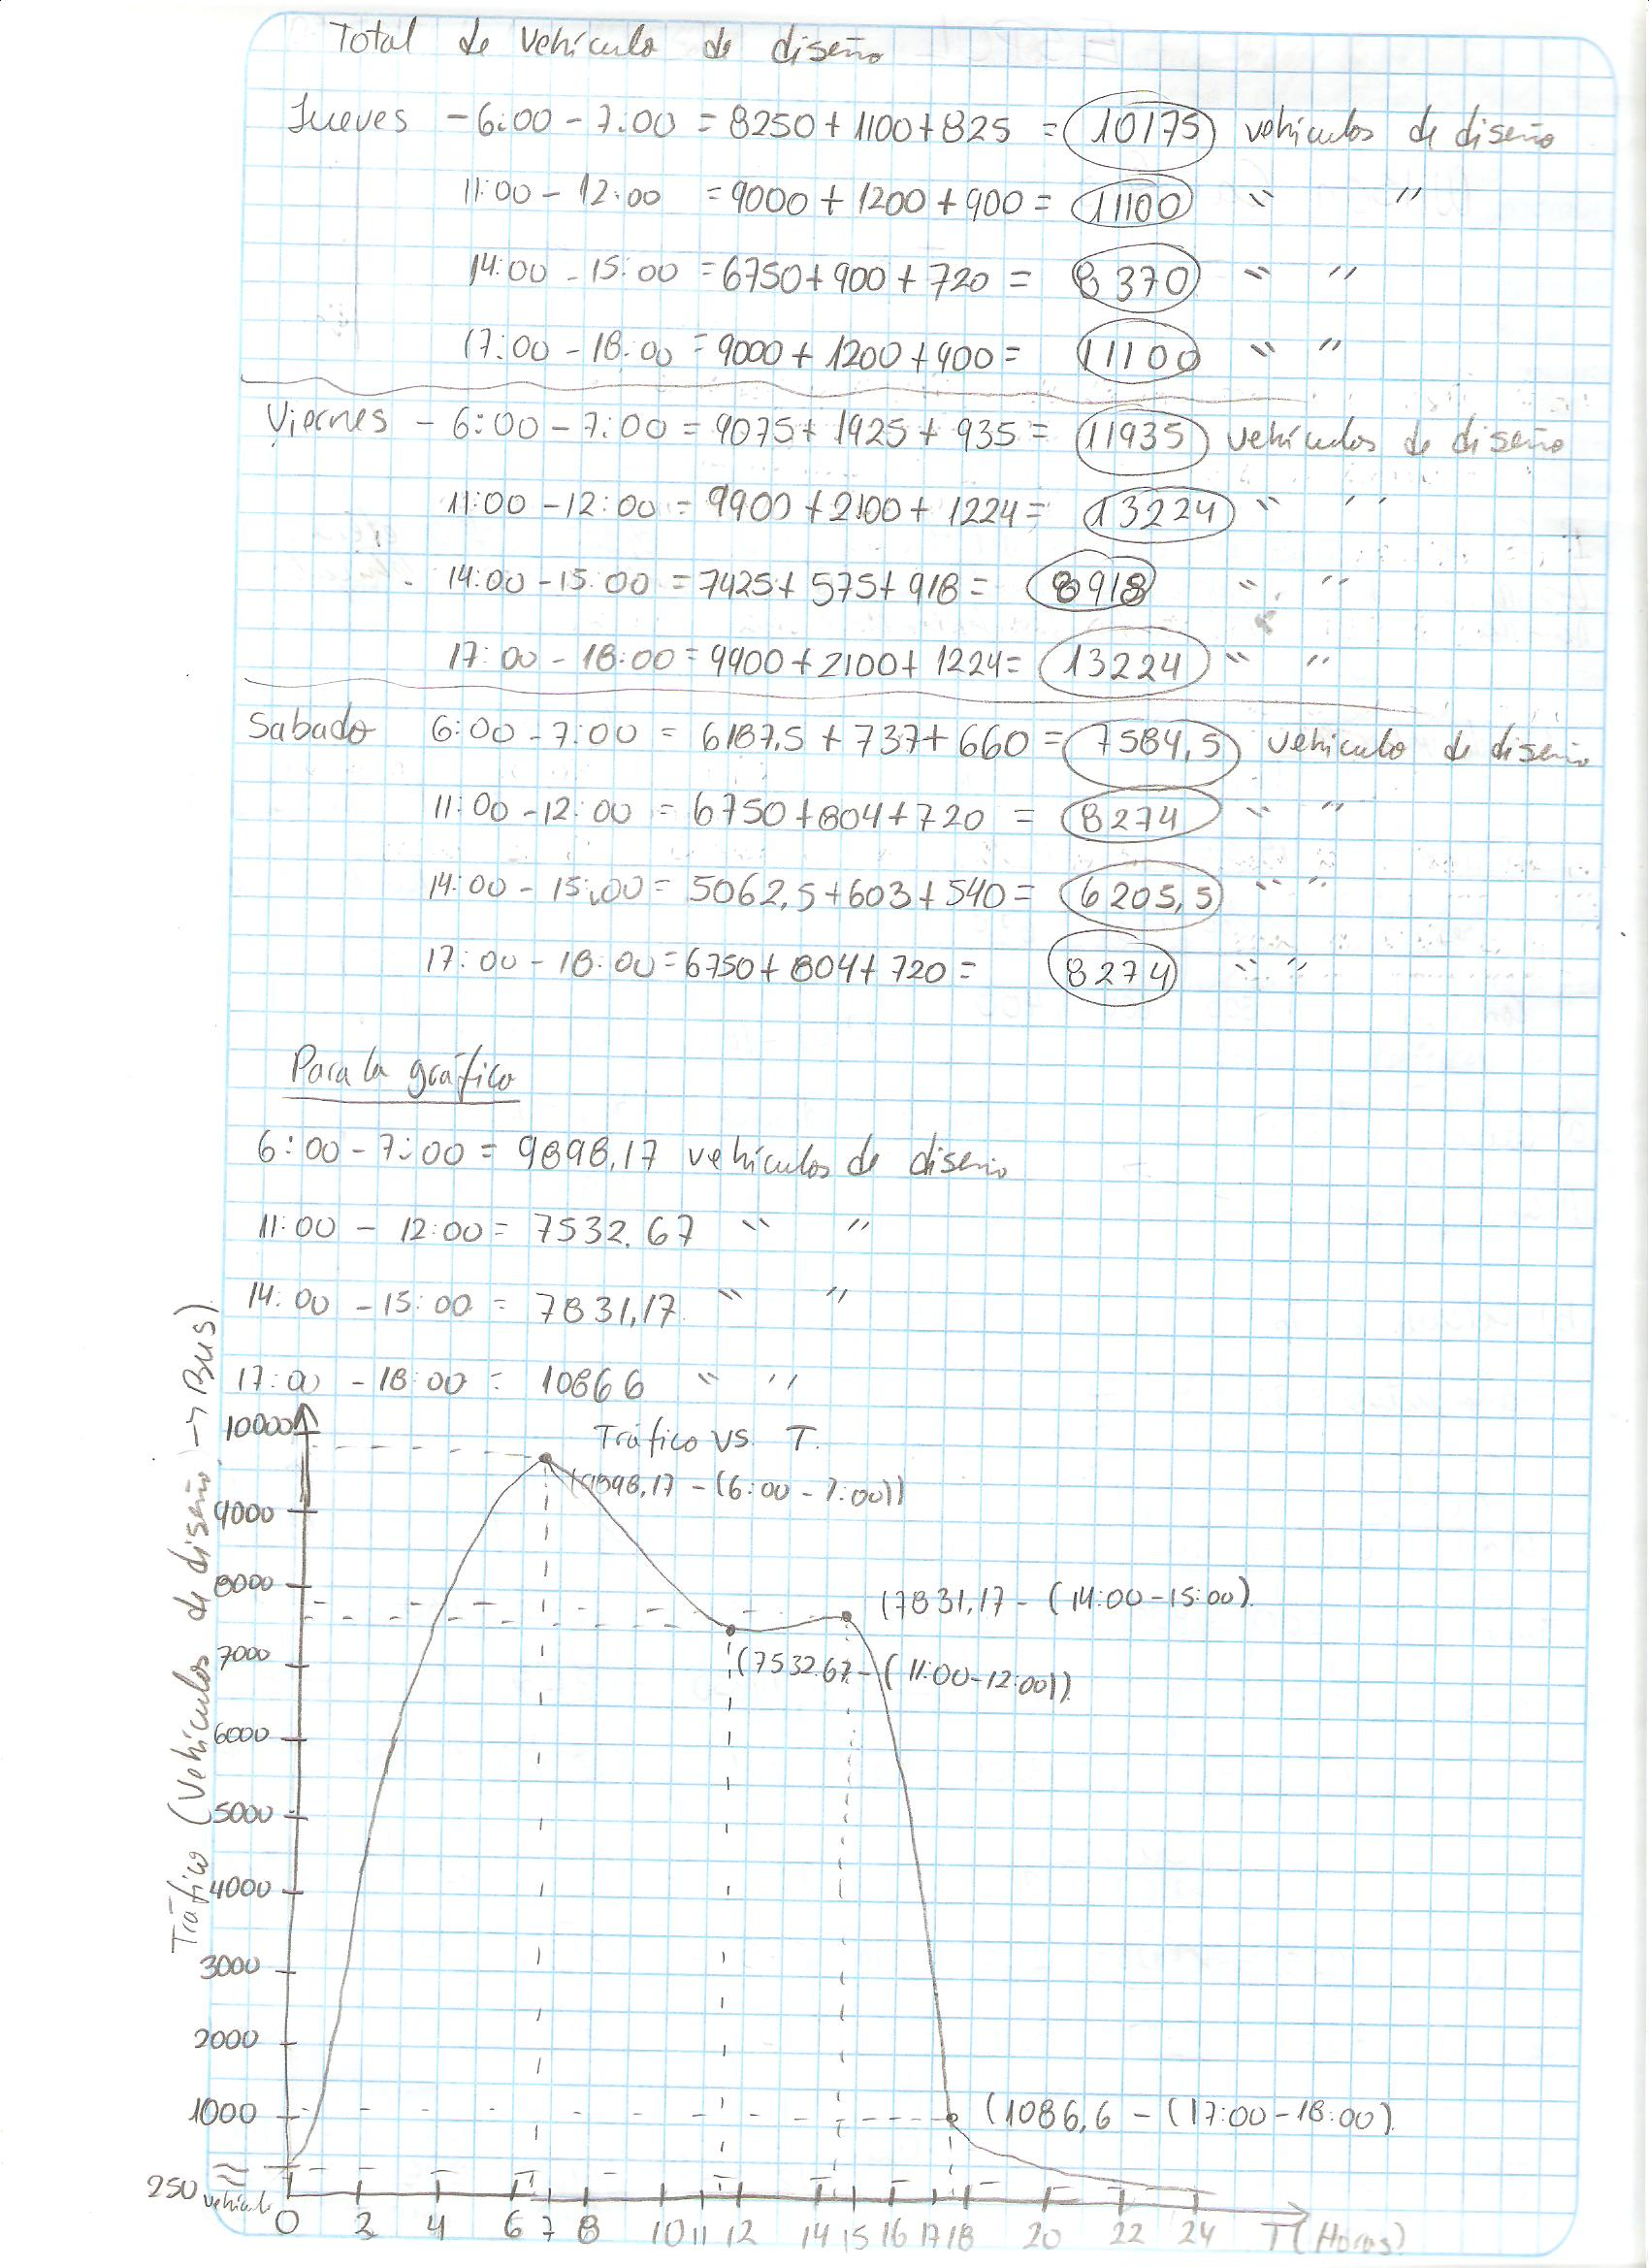 Total de vehículo de diseño
Jueves - 6:00 - 7:00 = 8250 + 1100 + 825 = 10175 vehiculos de diseño
11:00 - 12:00 = 9000 + 1200 + 900 = 11100 " "
14:00 - 15:00 = 6750 + 900 + 720 = 8370 " "
17:00 - 18:00 = 9000 + 1200 + 900 = 11100 " "
Viernes - 6:00 - 7:00 = 9075 + 1925 + 935 = 11935 vehículos de diseño
11:00 - 12:00 = 9900 + 2100 + 1224 = 13224 " "
14:00 - 15:00 = 7425 + 575 + 918 = 8918 " "
17:00 - 18:00 = 9900 + 2100 + 1224 = 13224 " "
Sabado 6:00 - 7:00 = 6187,5 + 737 + 660 = 7584,5 vehiculo de diseño
11:00 - 12:00 = 6750 + 804 + 720 = 8274 " "
14:00 - 15:00 = 5062,5 + 603 + 540 = 6205,5 " "
17:00 - 18:00 = 6750 + 804 + 720 = 8274 " "
Para la gráfico
6:00 - 7:00 = 9898,17 vehículos de diseño
11:00 - 12:00 = 7532.67 " "
14:00 - 15:00 = 7831,17 " "
17:00 - 18:00 = 10866 " "
Tráfico (Vehículos de diseño → Bus)
Tráfico vs. T.
10000
(9898,17 - (6:00 - 7:00))
9000
8000
(7831,17 - (14:00 - 15:00)
7000
(7532.67 - (11:00 - 12:00))
6000
5000
4000
3000
2000
1000
(1086,6 - (17:00 - 18:00)
250 vehículo
0 2 4 6 7 8 10 11 12 14 15 16 17 18 20 22 24 T (Horas)